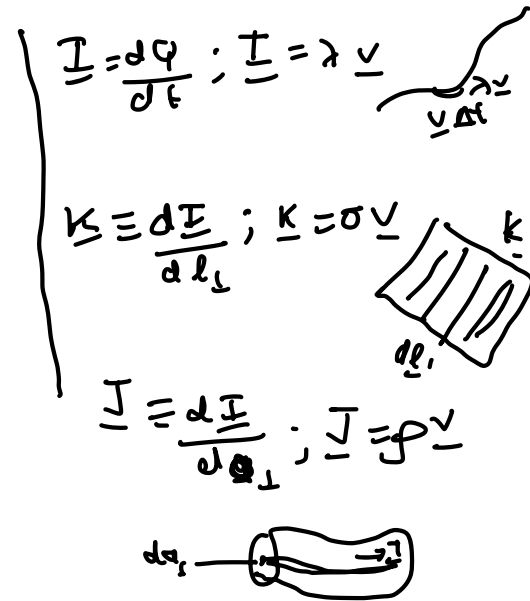 I = dq/dt ; I = λ v
λv
v Δt
K ≡ dI/dl⊥ ; K = σ v
K
dl⊥
J ≡ dI/da⊥ ; J = ρ v
da⊥
J